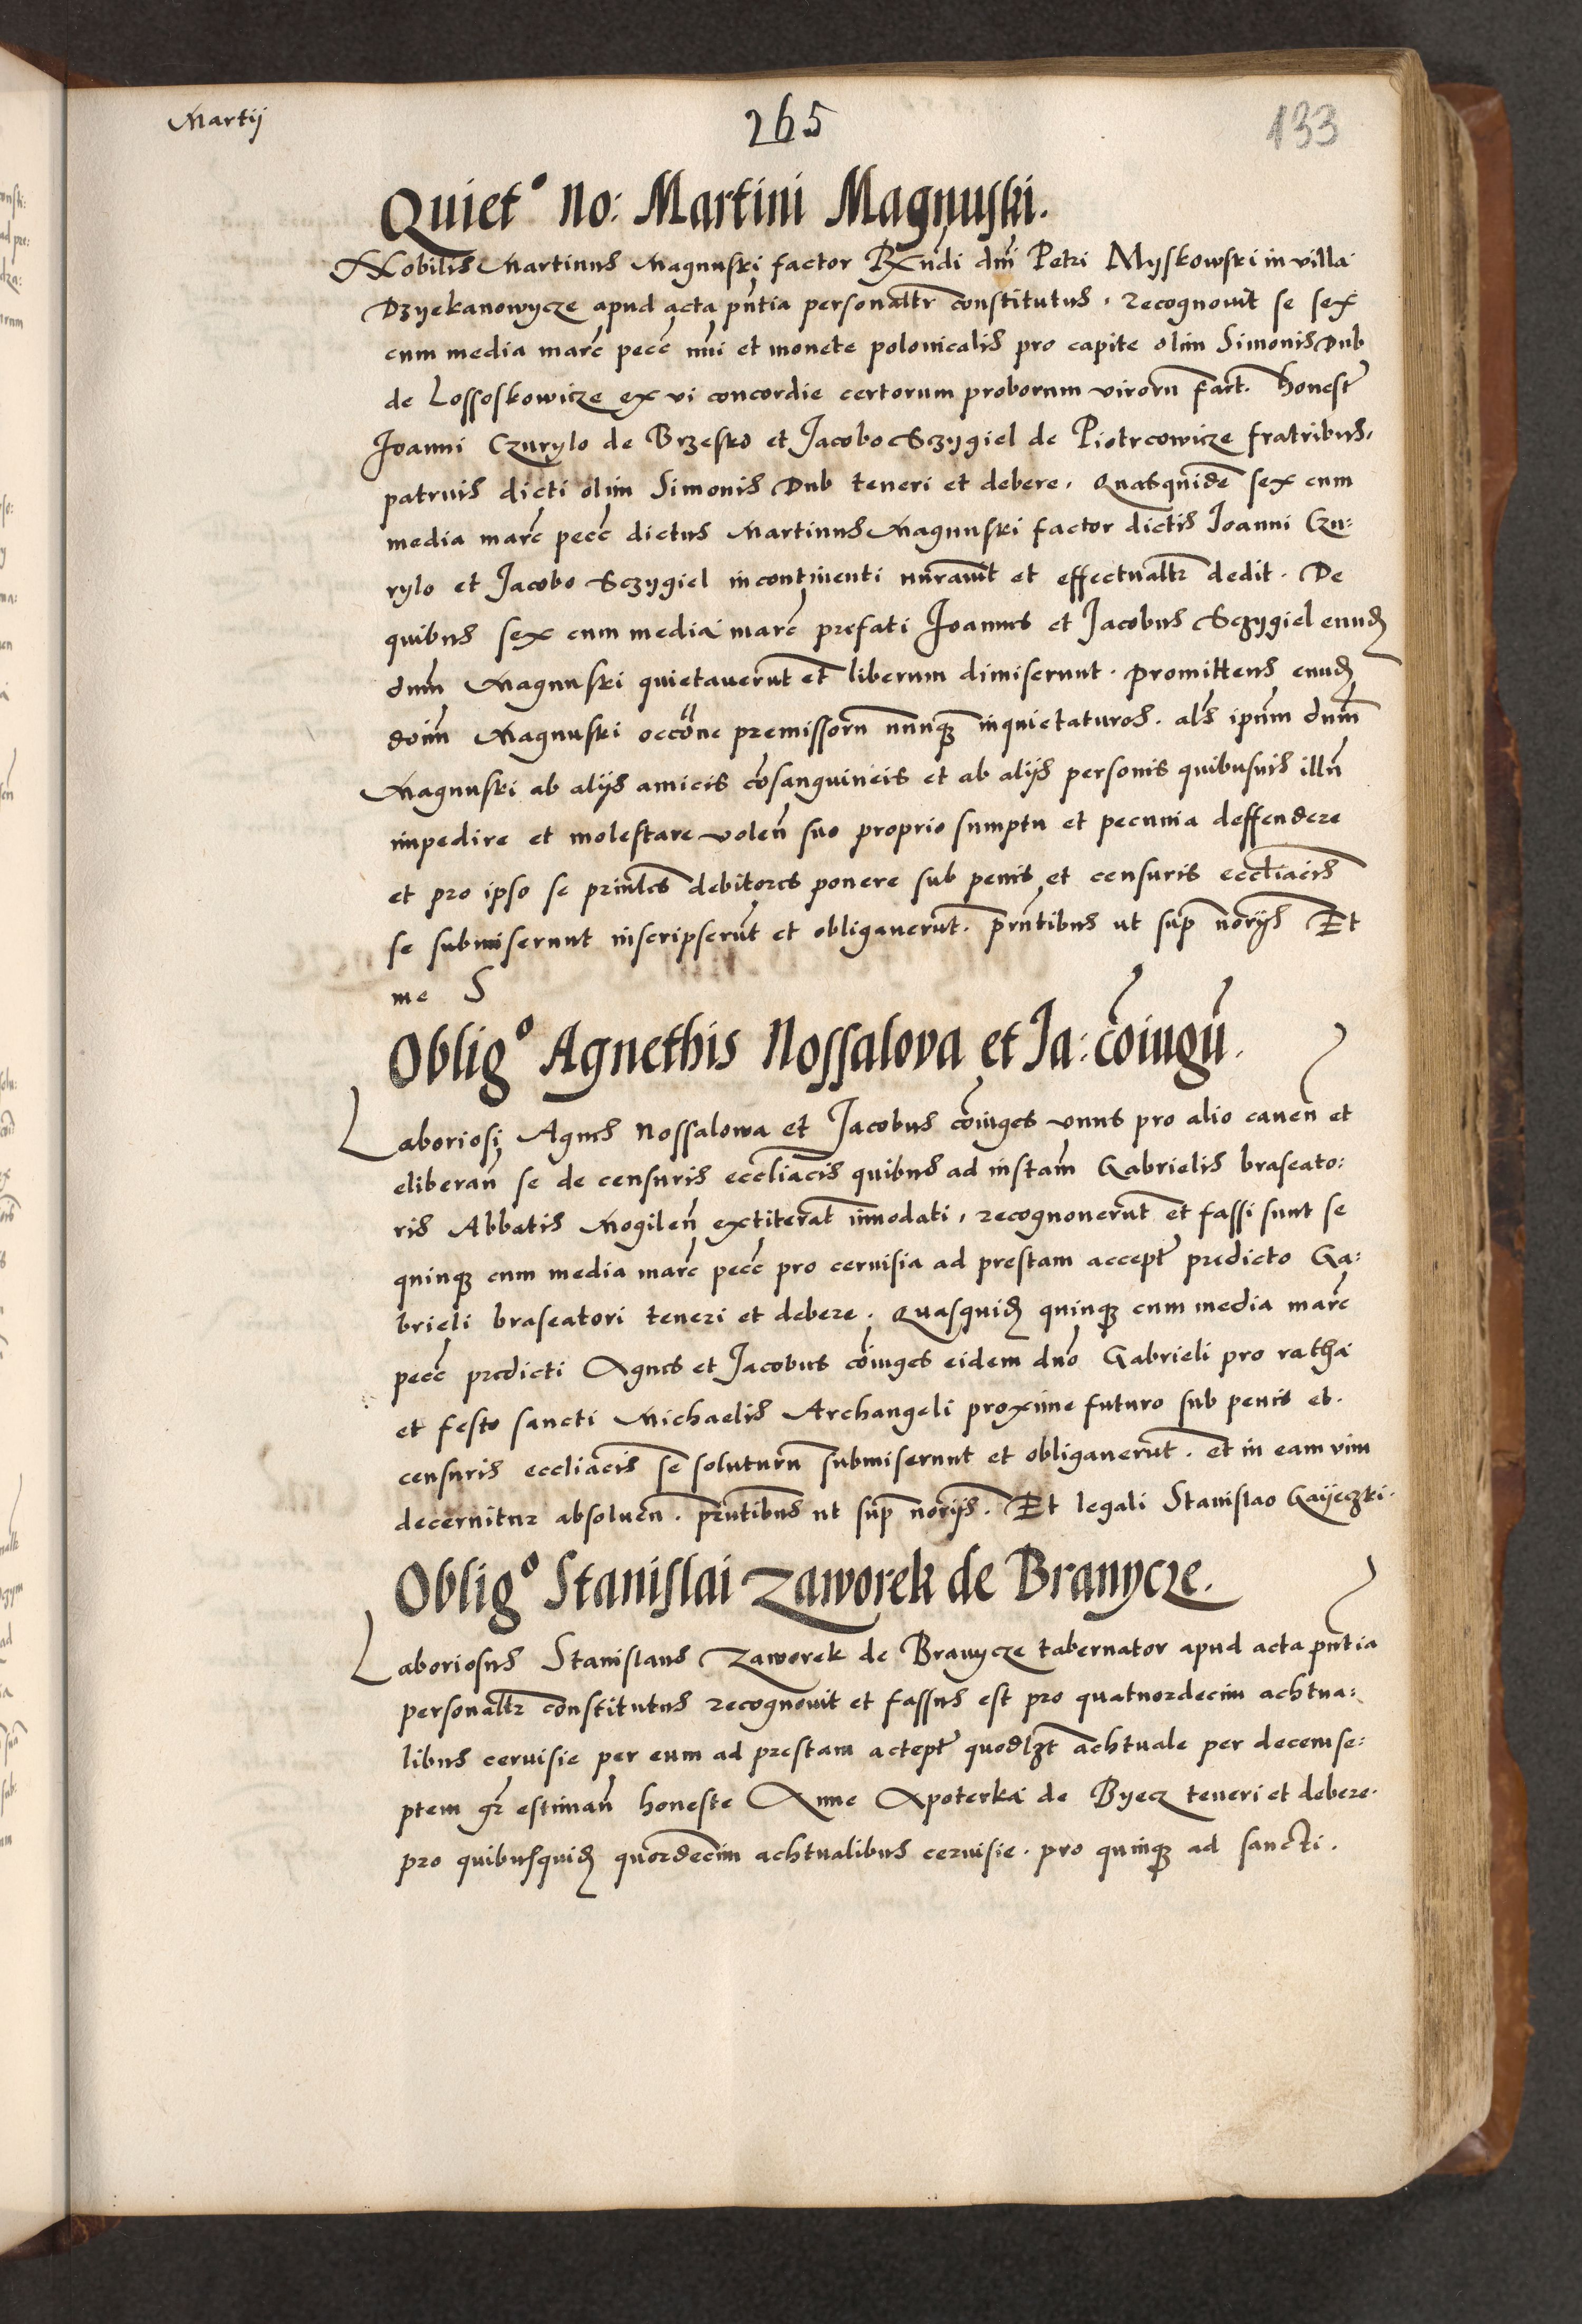 Martij
265
133
Quiet° No: Martini Magnuski.
Nobilis Martinus Magnuski factor Rxndi dnī Petri Myskowski in villa
Dzyekanowycze apud acta pn̄tia personaltr constitutus, recognovit se sex
cum media marc pecc nri et monete polonicalis pro capite olim Simonis Dub
de Lossoskowicze ex vi concordie certorum proborum virorū fact. honest
Joanni Czurylo de Brzesko et Jacobo Sczygiel de Piotrcowicze fratribus,
patruis dicti olim Simonis Dub teneri et debere. Quasquidē sex cum
media marc pecc dictus Martinus Magnuski factor dictis Joanni Czu:
rylo et Jacobo Sczygiel in continenti nūravit et effectualtr dedit. De
quibus sex cum media marc prefati Joannes et Jacobus Sczygiel eund
dnm Magnuski quietaverūt et liberum dimiserunt. promittens eund
doim Magnuski occōne premissorū nunq inquietaturos. als ipūm dnm
Magnuski ab alijs amicis cōsanguineis et ab alijs personis quibusuis illū
impedire et molestare volen̄ suo proprio sumptu et pecunia deffendere
et pro ipso se prin̄les debitores ponere sub penis et censuris eccl̄iacis
se submiserunt inscripserūt et obligaverūt. prn̄tibus ut sup norijs Et
me S
Oblig° Agnethis Nossalova et Ja: cōiugū.
Laboriosi Agnes Nossalowa et Jacobus cōiuges vnus pro alio caven̄ et
eliberan̄ se de censuris eccl̄iacis quibus ad instam̄ Gabrielis braseato:
ris Abbatis Mogilen̄ extiterāt innodati, recognoverūt et fassi sunt se
quinq cum media marc pecc pro cervisia ad prestam accept predicto Ga:
brieli braseatori teneri et debere. Quasquid quinq cum media marc
pecc predicti Agnes et Jacobus cōiuges eidem dn̄o Gabrieli pro ratha
et festo sancti Michaelis Archangeli proxime futuro sub penis et.
censuris eccliacis se soluturū submiserunt et obligaverūt. et in eam vim
decernitur absoluen̄. prn̄tibus ut sup norijs. Et legali Stanislao Gaijeczki.
Oblig° Stanislai Zaworek de Branycze.
Laboriosus Stanislaus Zaworek de Branycze tabernator apud acta pn̄tia
personaltr constitutus recognovit et fassus est pro quatuordecim achtua:
libus cervisie per eum ad prestam accept quodlzt achtuale per decemse:
ptem gr estiman̄ honeste Anne Apoterka de Byecz teneri et debere.
pro quibusquid quordecim achtualibus cervisie. pro quinq ad sancti.